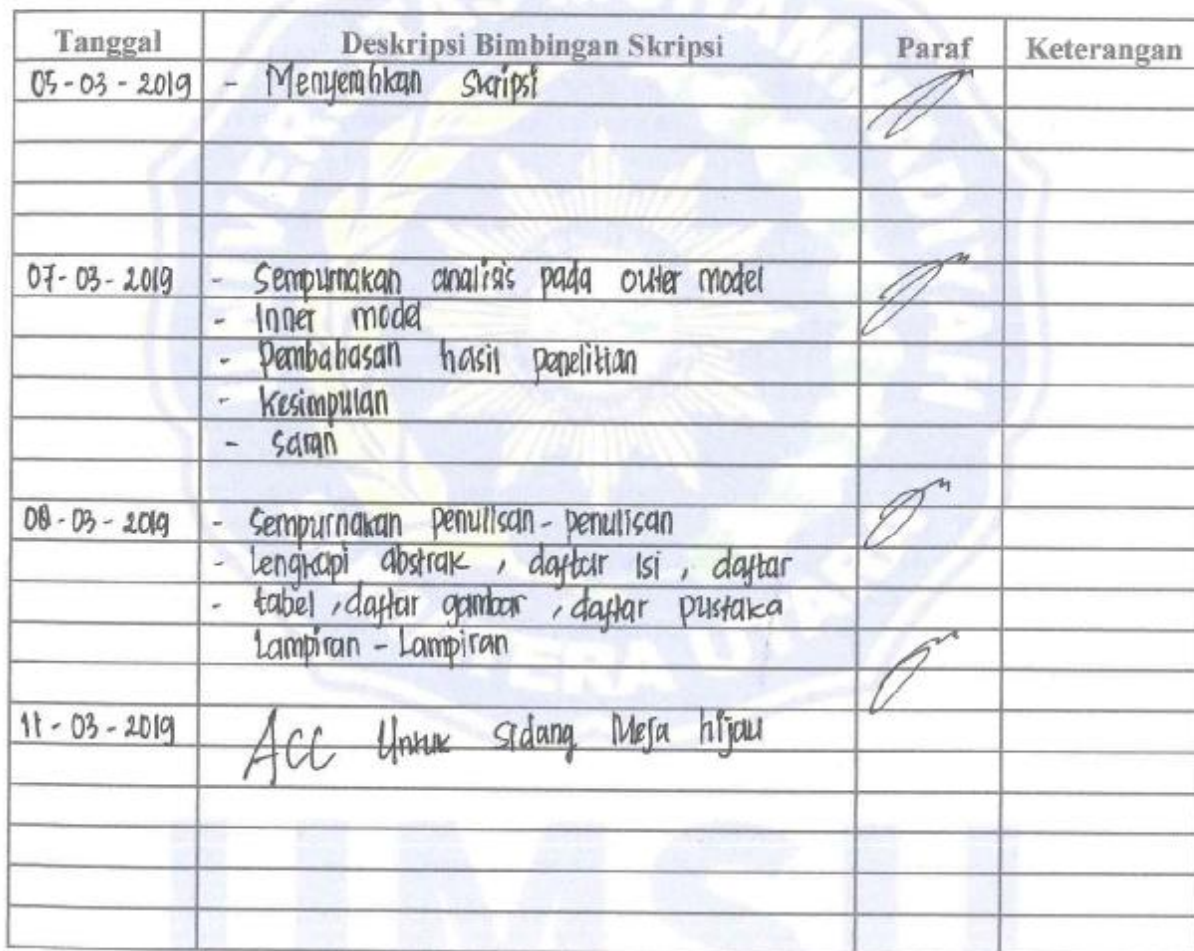 Tanggal Deskripsi Bimbingan Skripsi Paraf Keterangan
05-03-2019 - Menyerahkan Skripsi
07-03-2019 - Sempurnakan analisis pada outer model
- Inner model
- Pembahasan hasil penelitian
- Kesimpulan
- Saran
08-03-2019 - Sempurnakan penulisan-penulisan
- Lengkapi abstrak, daftar isi, daftar
- tabel, daftar gambar, daftar pustaka
Lampiran-Lampiran
11-03-2019 ACC Untuk sidang Meja hijau
UMSU